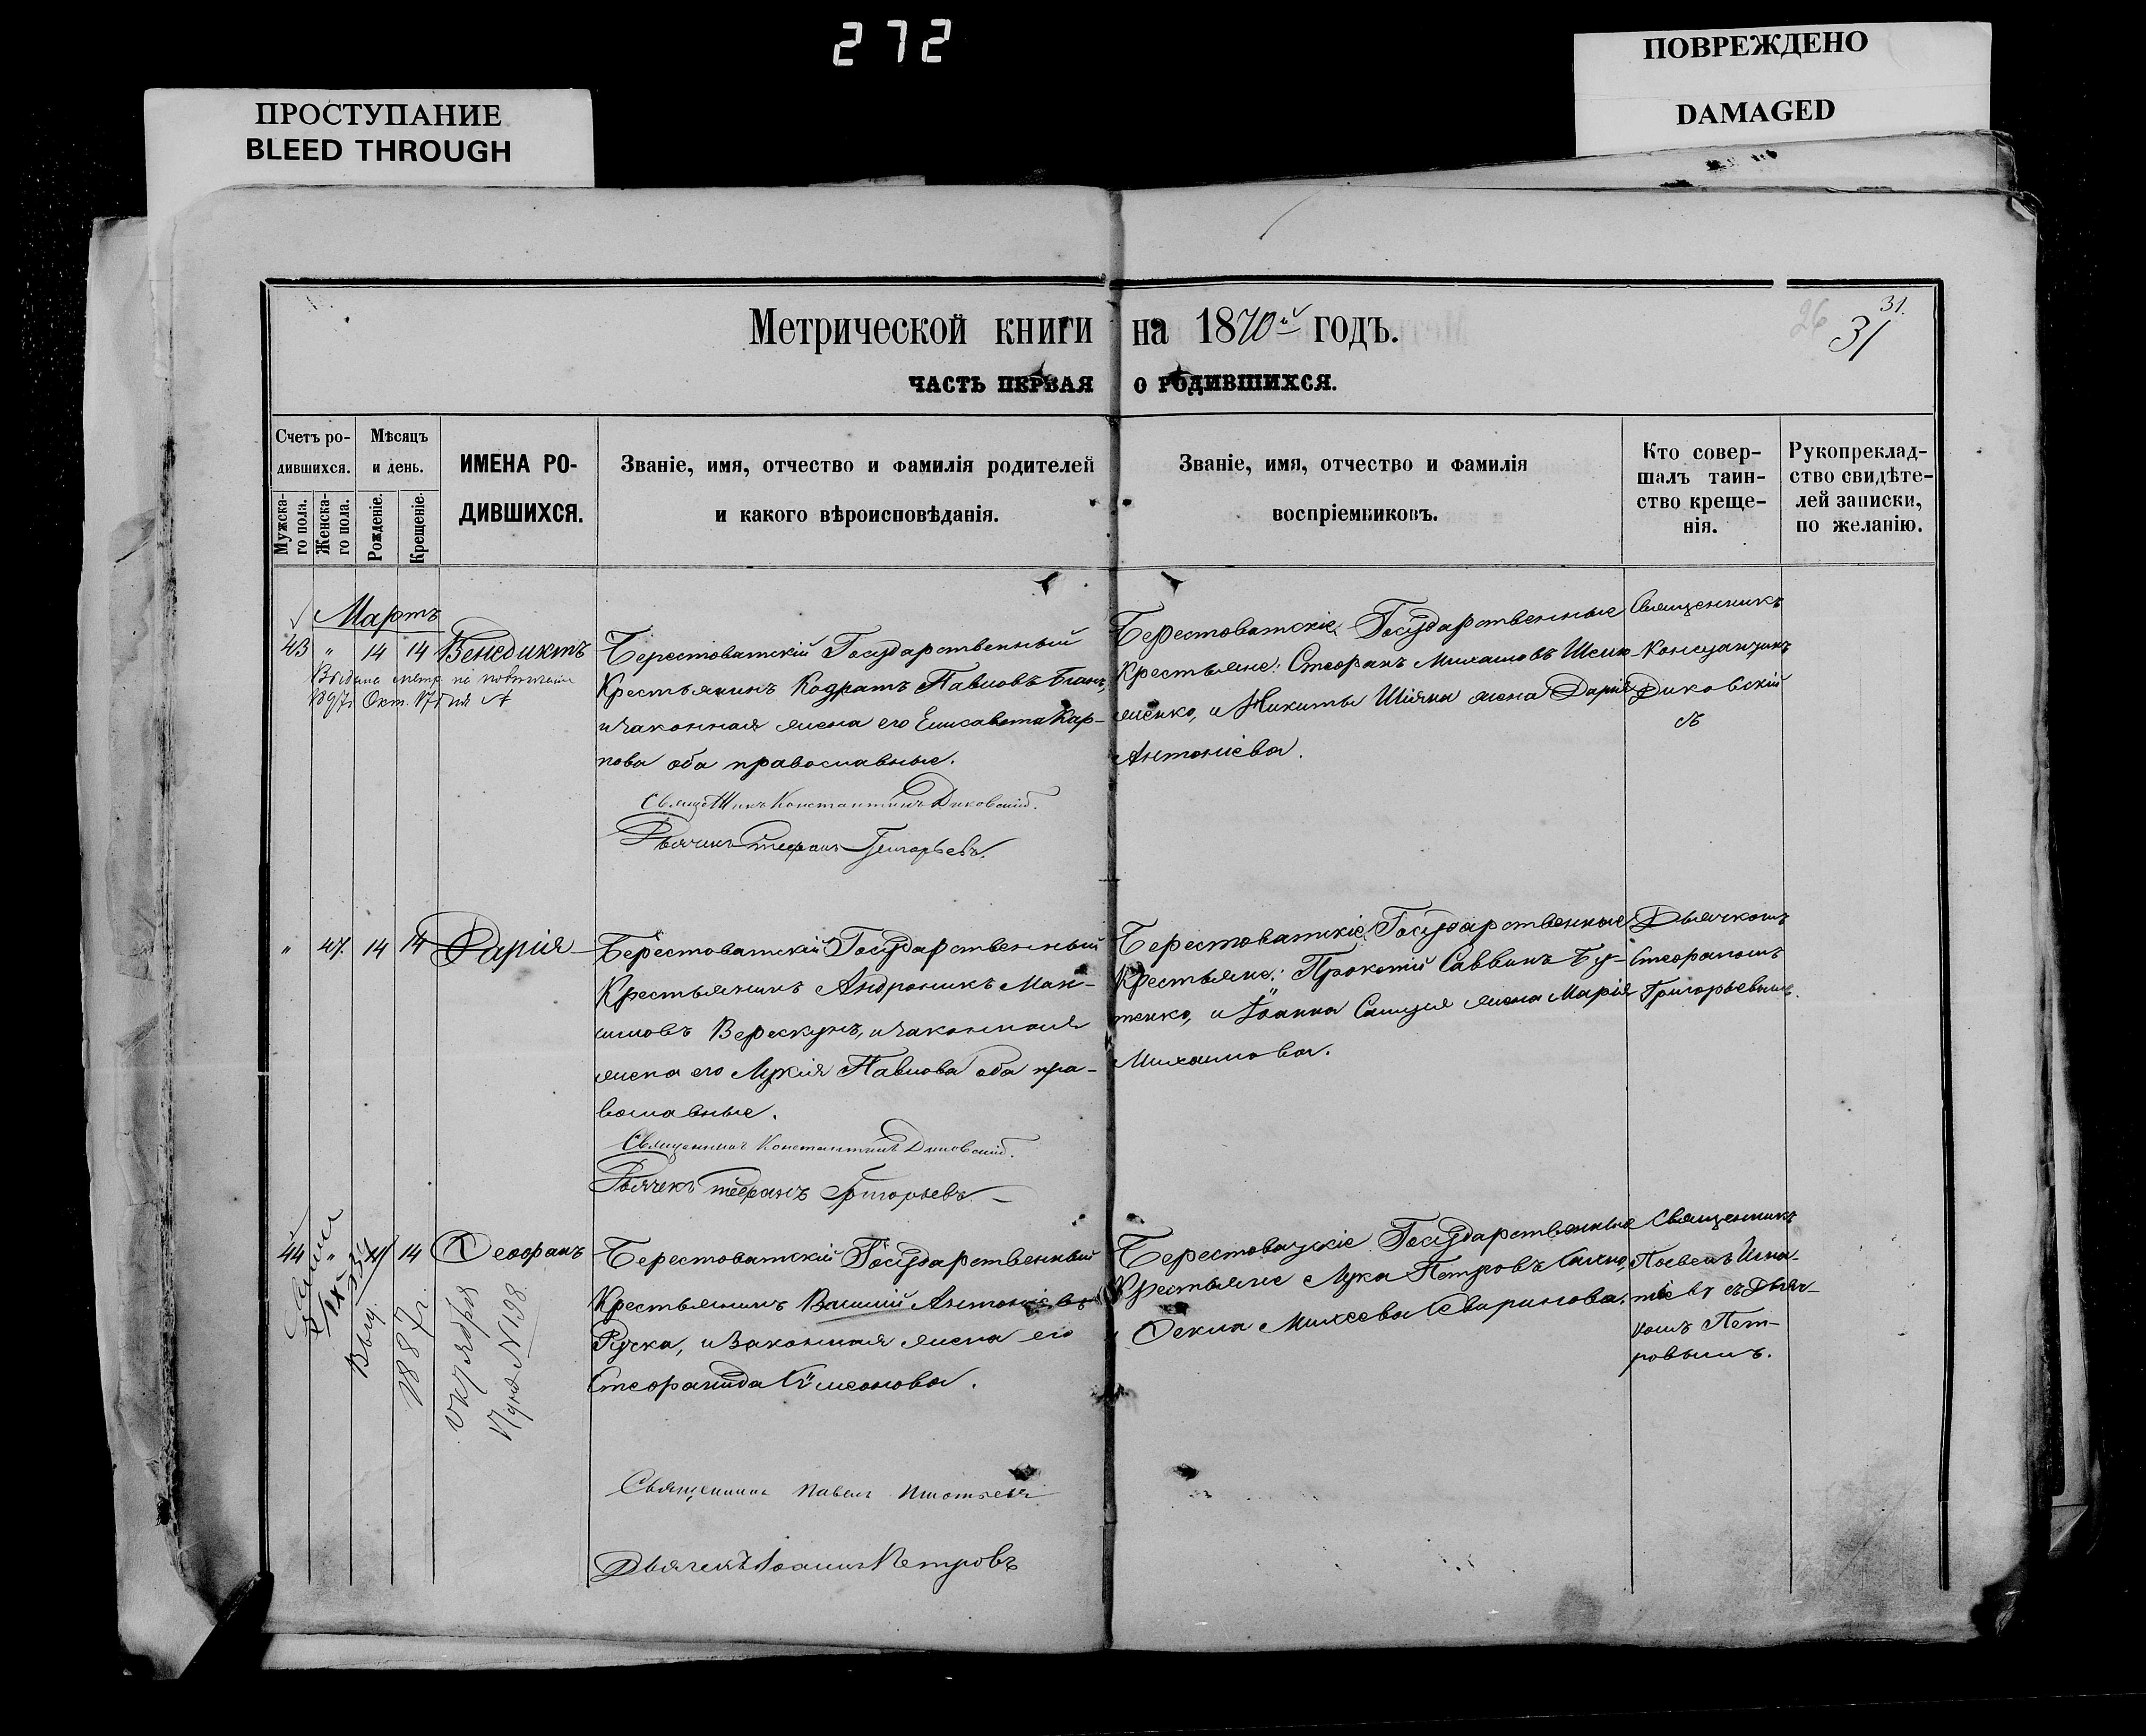 272
ПРОСТУПАНИЕ
BLEED THROUGH
ПОВРЕЖДЕНО
DAMAGED
31.
26 31
Метрической книги на 1870й годъ.
ЧАСТЬ ПЕРВАЯ О РОДИВШИХСЯ.
Счетъ ро-
дившихся.
Мужска-
го пола.
Женска-
го пола.
Мѣсяцъ
и день.
Рожденіе.
Крещеніе.
ИМЕНА РО-
ДИВШИХСЯ.
Званіе, имя, отчество и фамилія родителей
и какого вѣроисповѣданія.
Званіе, имя, отчество и фамилія
воспріемниковъ.
Кто совер-
шалъ таин-
ство креще-
нія.
Рукопреклад-
ство свидѣте-
лей записки,
по желанію.
Мартъ
43 " 14 14 Венедиктъ
Выдана метр. по
1897г Окт. 17
Берестоватскій Государственный
Крестьянинъ Кодратъ Павловъ
и законная жена его Елисавета Кар-
пова оба православные.
Священникъ Константинъ Диковскій.
Дьячекъ Стефанъ Григорьевъ.
Берестоватскіе Государственные
Крестьяне: Стефанъ Михаиловъ
и Никиты Шіяна жена Дарія
Антоніева.
Священникъ
Константинъ
Диковскій
съ
" 47. 14 14 Дарія
Берестоватскій Государственный
Крестьянинъ Андроникъ Мак-
симовъ Верескунъ, и законная
жена его Лукія Павлова оба пра-
вославные.
Священникъ Константинъ Диковскій.
Дьячекъ Стефанъ Григорьевъ
Берестоватскіе Государственные
Крестьяне: Прокопій Саввинъ Бу-
тенко, и Іоанна жена Марія
Михаилова.
Дьячкомъ
Стефаномъ
Григорьевымъ.
44 " 14 Феофанъ
Выд.
1887г.
октября
№198
Берестоватскій Государственный
Крестьянинъ Василій Антоніевъ
Руска, и законная жена его
Стефанида Симеонова.
Священникъ Павелъ Игнатьевъ
Дьячекъ Іоаннъ Петровъ
Берестовацкіе Государственные
Крестьяне Лука Петровъ
Фекла Михеева Северинова.
Священникъ
Павелъ Игна-
тіевъ съ Дьяч-
комъ Пет-
ровымъ.